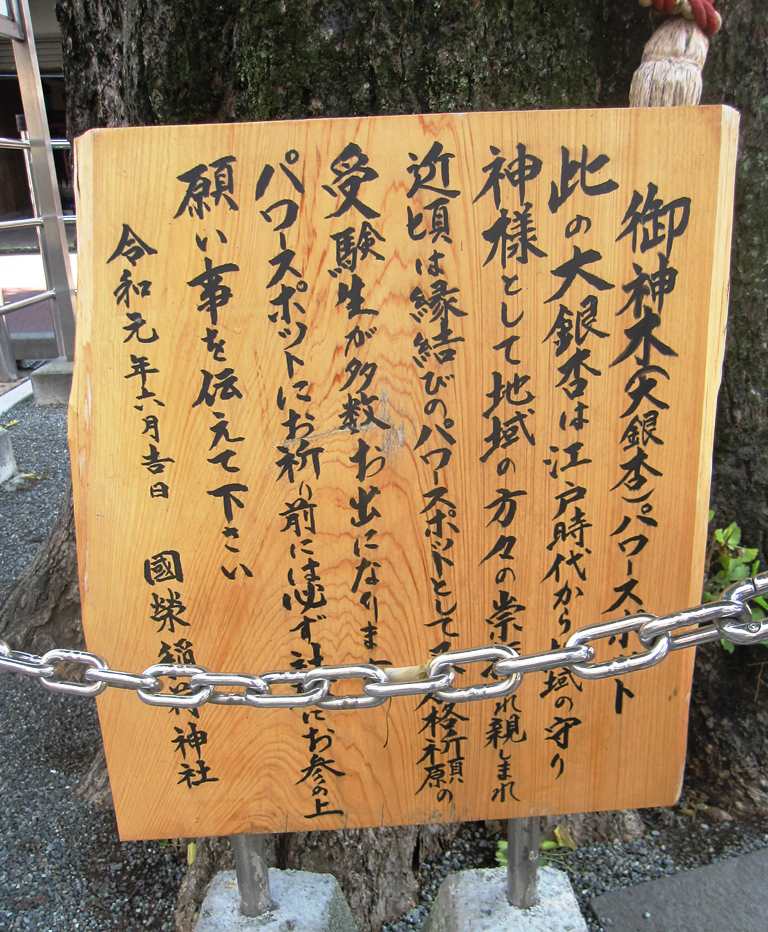 御神木(大銀杏)パワースポット
此の大銀杏は江戸時代から地域の守り
神様として地域の方々の崇れ親しまれ
近頃は縁結びのパワースポットとして格祈願の
受験生が多数お出になりま
パワースポットにお祈り前には必ず社にお参の上
願い事を伝えて下さい
令和元年六月吉日 國榮稲荷神社